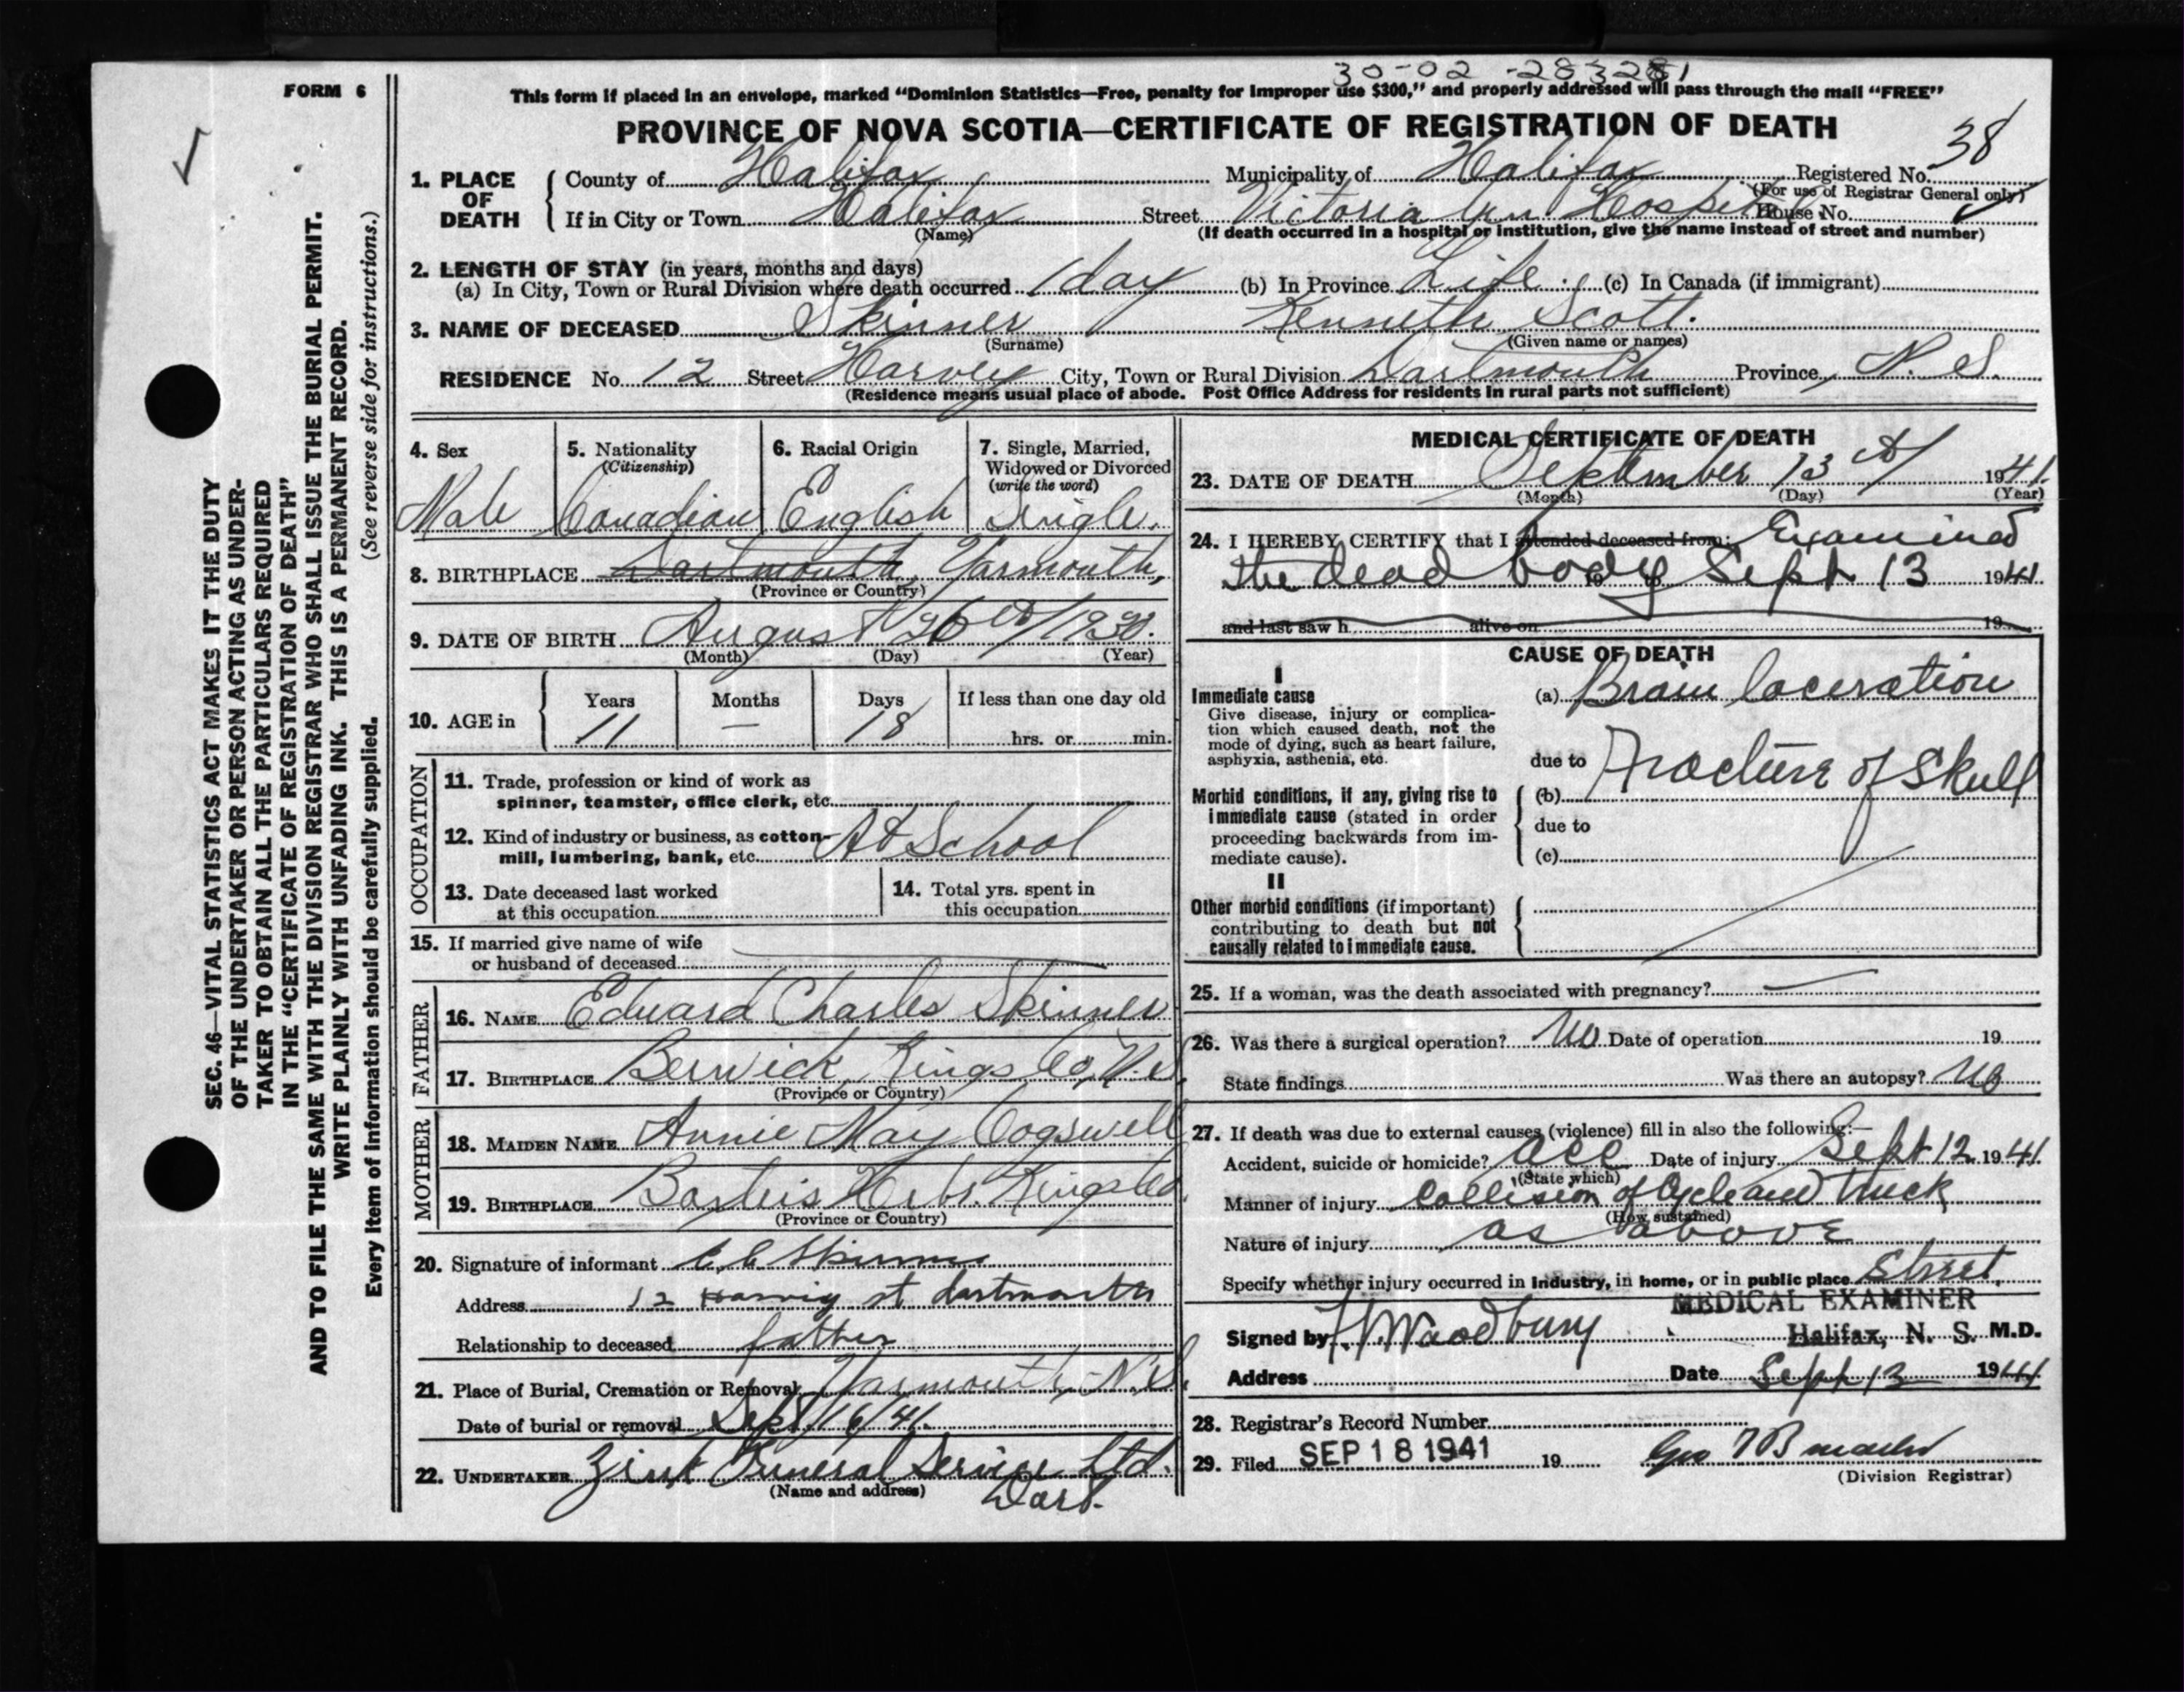 30-02-283281
FORM 6
This form if placed in an envelope, marked "Dominion Statistics—Free, penalty for improper use $300," and properly addressed will pass through the mail "FREE"
PROVINCE OF NOVA SCOTIA—CERTIFICATE OF REGISTRATION OF DEATH
38
1. PLACE OF DEATH
County of Halifax Municipality of Halifax Registered No.
(For use of Registrar General only)
If in City or Town Halifax Street Victoria Gen. Hospital House No.
(Name) (If death occurred in a hospital or institution, give the name instead of street and number)
2. LENGTH OF STAY (in years, months and days)
(a) In City, Town or Rural Division where death occurred 1 day (b) In Province Life (c) In Canada (if immigrant)
3. NAME OF DECEASED Skinner Kenneth Scott.
(Surname) (Given name or names)
RESIDENCE No. 12 Street Harvey City, Town or Rural Division Dartmouth Province N. S.
(Residence means usual place of abode. Post Office Address for residents in rural parts not sufficient)
4. Sex
Male
5. Nationality
(Citizenship)
Canadian
6. Racial Origin
English
7. Single, Married,
Widowed or Divorced
(write the word)
Single.
8. BIRTHPLACE Dartmouth, Yarmouth,
(Province or Country)
9. DATE OF BIRTH August 26th/1930.
(Month) (Day) (Year)
10. AGE in
Years Months Days If less than one day old
11 — 18 hrs. or min.
OCCUPATION
11. Trade, profession or kind of work as
spinner, teamster, office clerk, etc.
12. Kind of industry or business, as cotton-
mill, lumbering, bank, etc. At School
13. Date deceased last worked
at this occupation
14. Total yrs. spent in
this occupation
15. If married give name of wife
or husband of deceased
FATHER
16. NAME Edward Charles Skinner
17. BIRTHPLACE Berwick, Kings Co, N.S.
(Province or Country)
MOTHER
18. MAIDEN NAME Annie May Cogswell
19. BIRTHPLACE Kings Co.
(Province or Country)
20. Signature of informant Skinner
Address 12 Harvey st dartmouth
Relationship to deceased father
21. Place of Burial, Cremation or Removal Yarmouth, N.S.
Date of burial or removal Sept/16/41.
22. UNDERTAKER Zink Funeral Service Ltd.
(Name and address) Dart.
MEDICAL CERTIFICATE OF DEATH
23. DATE OF DEATH September 13th/ 1941.
(Month) (Day) (Year)
24. I HEREBY CERTIFY that I attended deceased from: Examined
the dead body Sept 13 1941
and last saw h alive on 19
CAUSE OF DEATH
I
Immediate cause (a) Brain laceration
Give disease, injury or complica-
tion which caused death, not the
mode of dying, such as heart failure,
asphyxia, asthenia, etc.
due to Fracture of Skull
Morbid conditions, if any, giving rise to
immediate cause (stated in order
proceeding backwards from im-
mediate cause).
(b)
due to
(c)
II
Other morbid conditions (if important)
contributing to death but not
causally related to immediate cause.
25. If a woman, was the death associated with pregnancy? —
26. Was there a surgical operation? No Date of operation 19
State findings Was there an autopsy? No
27. If death was due to external causes (violence) fill in also the following:—
Accident, suicide or homicide? acc Date of injury Sept 12 1941
(State which)
Manner of injury Collision of Cycle and Truck
(How sustained)
Nature of injury as above
Specify whether injury occurred in industry, in home, or in public place Street
MEDICAL EXAMINER
Signed by Woodbury Halifax, N. S. M.D.
Address Date Sept 13 1941
28. Registrar's Record Number
29. Filed SEP 18 1941 19
(Division Registrar)
SEC. 46—VITAL STATISTICS ACT MAKES IT THE DUTY
OF THE UNDERTAKER OR PERSON ACTING AS UNDER-
TAKER TO OBTAIN ALL THE PARTICULARS REQUIRED
IN THE "CERTIFICATE OF REGISTRATION OF DEATH"
AND TO FILE THE SAME WITH THE DIVISION REGISTRAR WHO SHALL ISSUE THE BURIAL PERMIT.
WRITE PLAINLY WITH UNFADING INK. THIS IS A PERMANENT RECORD.
Every item of information should be carefully supplied. (See reverse side for instructions.)